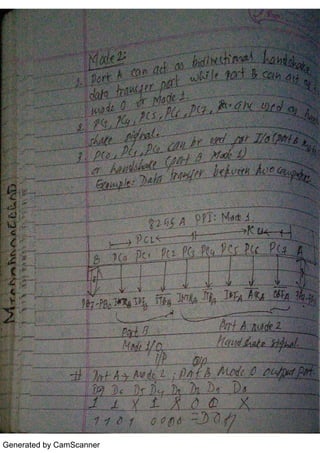 Mode 2:
1. Port A can act as bidirectional handshake
data transfer port while port B can act as
mode 0 or Mode 1.
2. PC3, PC4, PC5, PC6, PC7, are used as hand
shake signal.
3. PC0, PC1, PC2 can be used for I/O (port B
or handshake (port B Mode 1)
Example: Data transfer between two computers
8255 A PPI: Mode
PCL
B PC0 PC1 PC2 PC3 PC4 PC5 PC6 PC7 A
PB7-PB0 INTRB STBB INTRA STBA IBFA
Port B
Port A mode 2
Mode 1/0
Handshake signal
I/P
O/P
# Port A → Mode 2 ; Port B Mode 0 output port.
D7 D6 D5 D4 D3 D2 D1 D0
1 1 X 1 X 0 0 X
1 1 0 1 0 0 0 0 = D0H
Generated by CamScanner